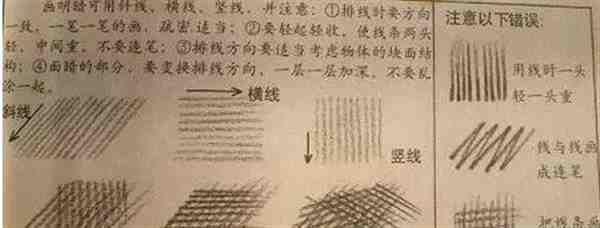 画明暗可用斜线、横线、竖线，并注意：①排线时要方向
一致，一笔一笔的画，疏密适当；②要轻起轻收，使线条两头
轻，中间重，不要连笔；③排线方向要适当考虑物体的块面结
构；④面暗的部分，要变换排线方向，一层一层加深，不要乱
涂一起。
斜线
横线
竖线
注意以下错误：
用线时一头
轻一头重
线与线画
成连笔
把线条